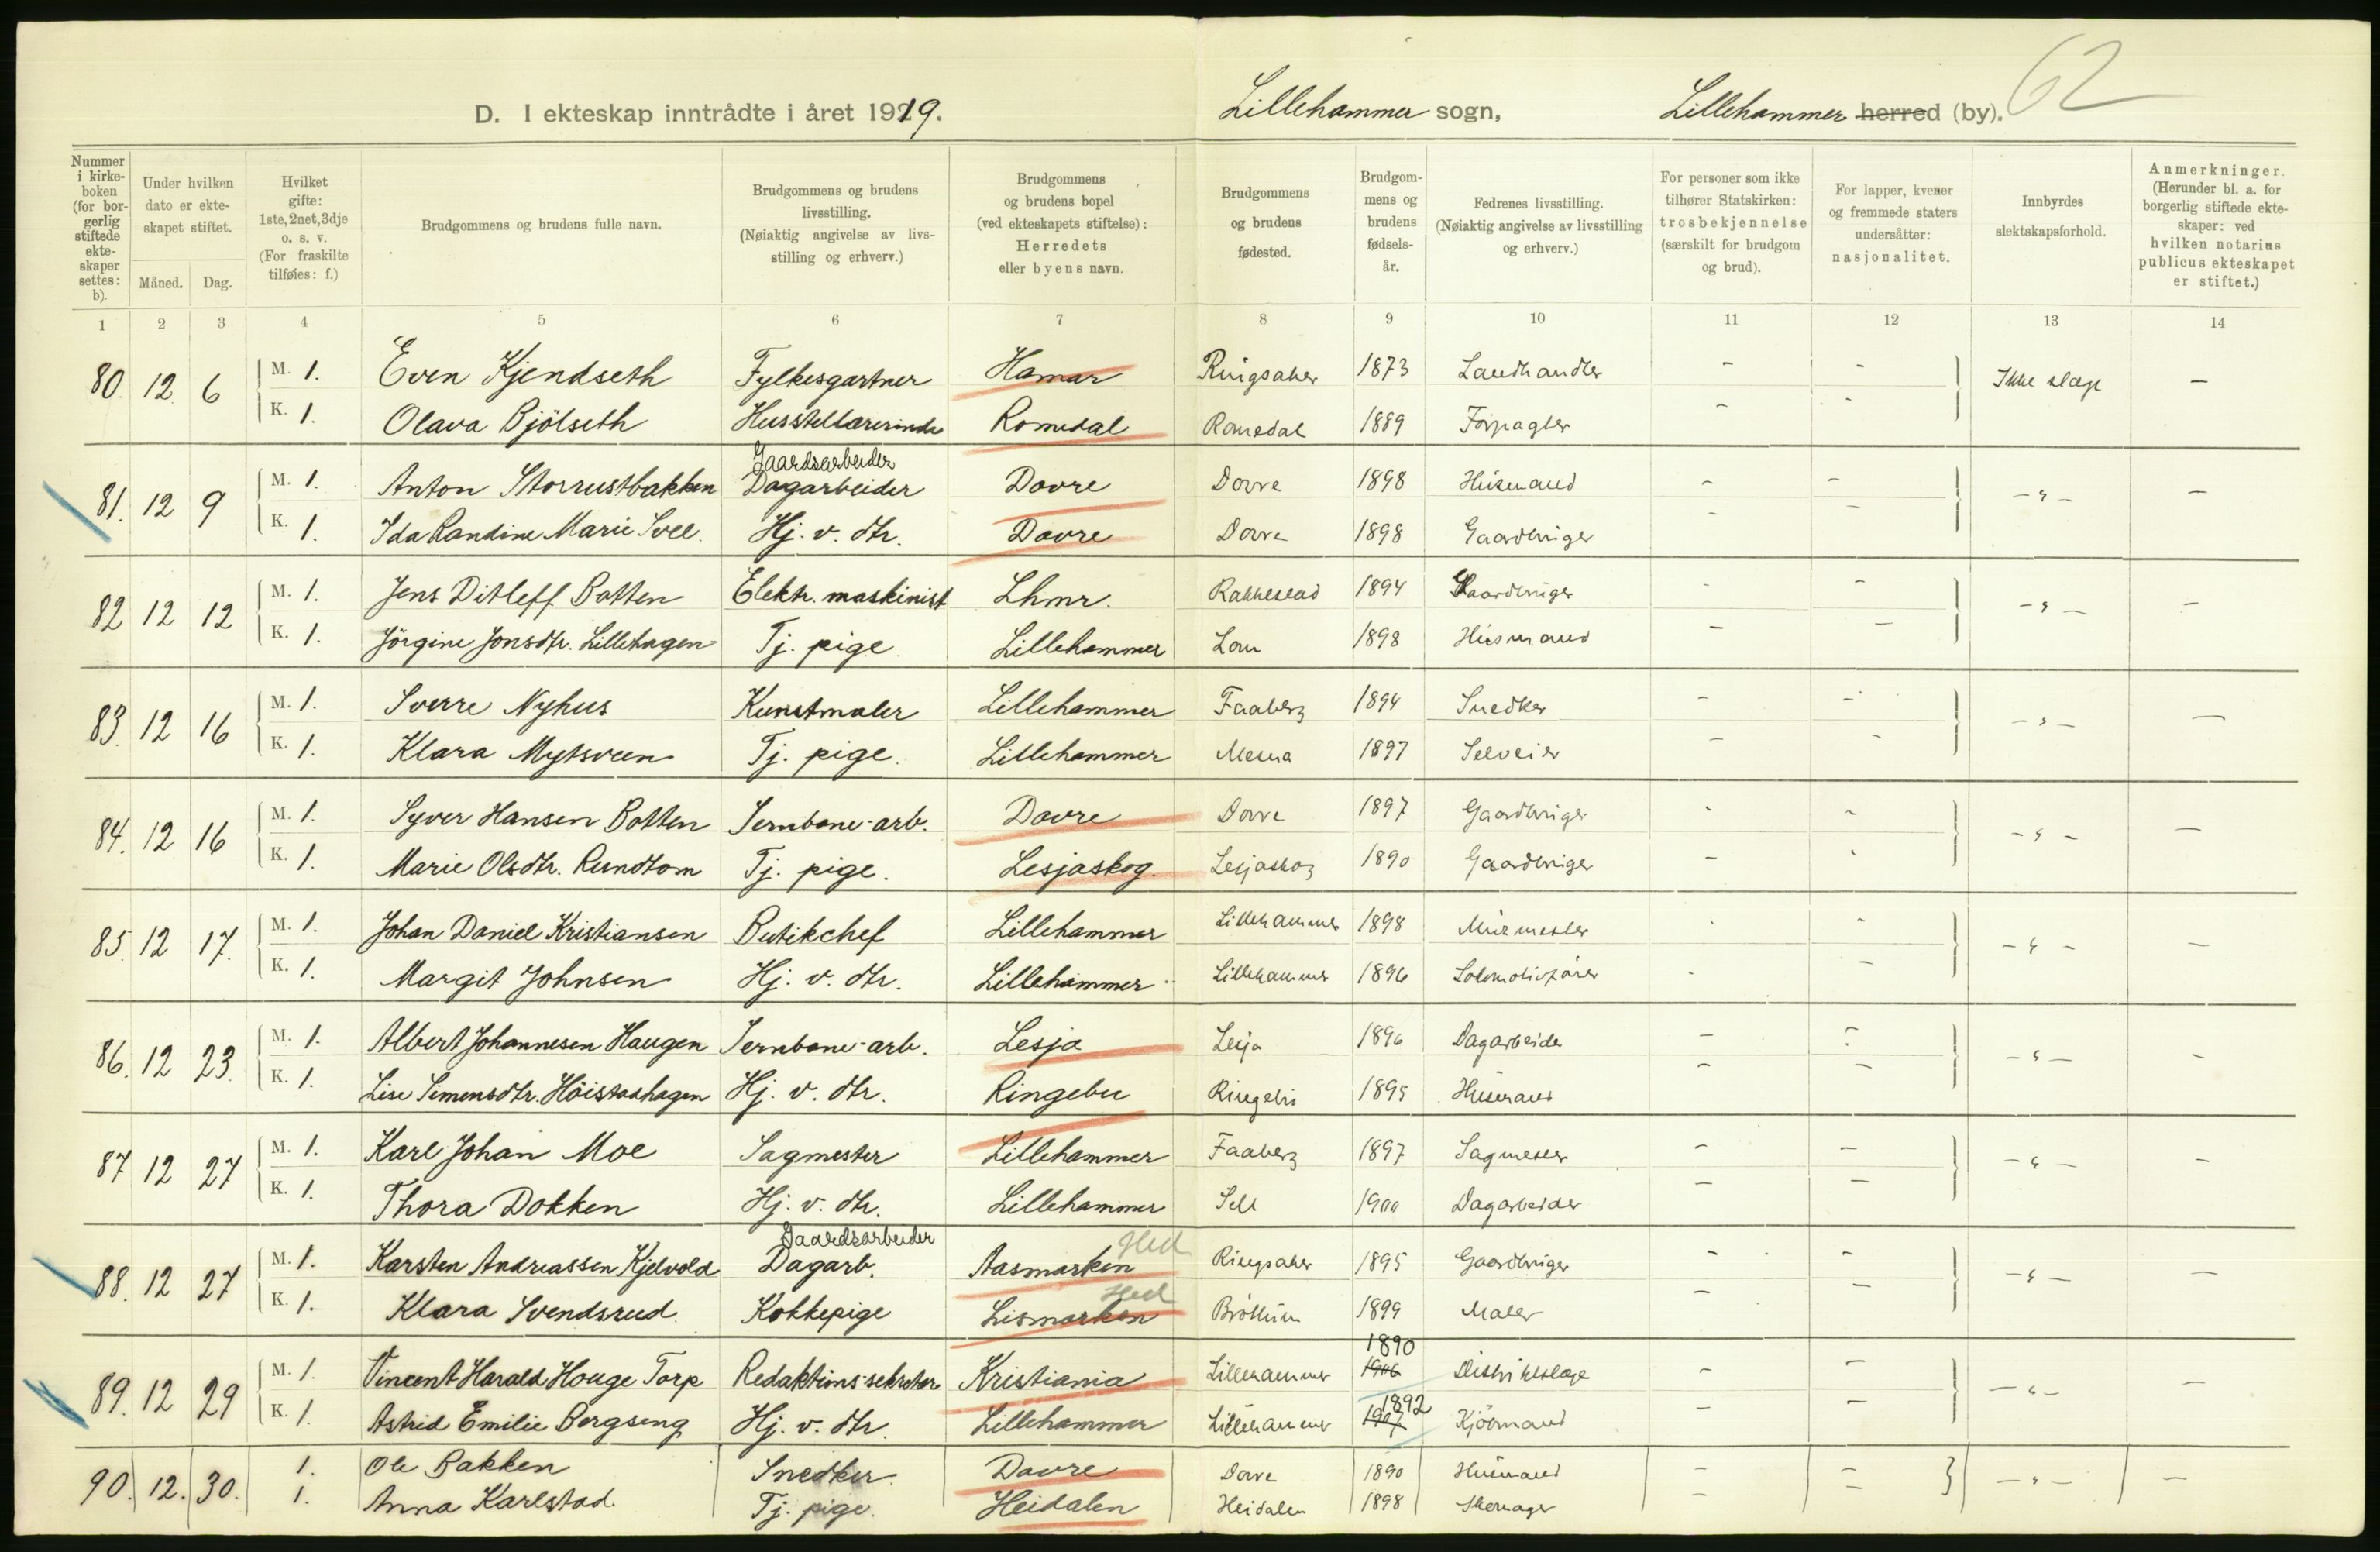 62
D. I ekteskap inntrådte i året 1919. Lillehammer sogn, Lillehammer herred (by).
Nummer i kirkeboken (for borgerlig stiftede ekteskaper settes: b).
Under hvilken dato er ekteskapet stiftet.
Måned. Dag.
Hvilket gifte: 1ste, 2net, 3dje o. s. v. (For fraskilte tilføies: f.)
Brudgommens og brudens fulle navn.
Brudgommens og brudens livsstilling. (Nøiaktig angivelse av livsstilling og erhverv.)
Brudgommens og brudens bopel (ved ekteskapets stiftelse): Herredets eller byens navn.
Brudgommens og brudens fødested.
Brudgommens og brudens fødselsår.
Fedrenes livsstilling. (Nøiaktig angivelse av livsstilling og erhverv.)
For personer som ikke tilhører Statskirken: trosbekjennelse (særskilt for brudgom og brud).
For lapper, kvener og fremmede staters undersåtter: nasjonalitet.
Innbyrdes slektskapsforhold.
Anmerkninger. (Herunder bl. a. for borgerlig stiftede ekteskaper: ved hvilken notarius publicus ekteskapet er stiftet.)
1 2 3 4 5 6 7 8 9 10 11 12 13 14
80. 12 6 M. 1. Even Kjendseth Fylkesgartner Hamar Ringsaker 1873 Landhandler - - Ikke slægt -
K. 1. Olava Bjölseth Husstellærerinde Romedal Romedal 1889 Forpagter - -
Gaardsarbeider
81. 12 9 M. 1. Anton Storrustbakken Dagarbeider Dovre Dovre 1898 Husmand - - - " - -
K. 1. Ida Randine Marie Svee. Hj. v. dtr. Dovre Dovre 1898 Gaardbruger - -
82 12 12 M. 1. Jens Ditleff Botten Elektr. maskinist Lhmr. Rakkestad 1894 Gaardbruger - - - " - -
K. 1. Jörgine Jonsdtr. Lillehagen Tj. pige. Lillehammer Lom 1898 Husmand - -
83. 12 16 M. 1. Sverre Nyhus Kunstmaler Lillehammer Faaberg 1894 Snedker - - - " - -
K. 1. Klara Mytsveen Tj. pige. Lillehammer Mesna 1897 Selveier - -
84. 12 16 M. 1. Syver Hansen Botten Jernbane-arb. Dovre Dovre 1897 Gaardbruger - - - " - -
K. 1. Marie Olsdtr. Rundtom Tj. pige. Lesjaskog. Lesjaskog 1890 Gaardbruger - -
85. 12 17. M. 1. Johan Daniel Kristiansen Butikchef Lillehammer Lillehammer 1898 Murmester - - - " - -
K. 1. Margit Johnsen Hj. v. dtr. Lillehammer Lillehammer 1896 Lokomotivfører - -
86. 12 23. M. 1. Albert Johannesen Haugen Jernbane-arb. Lesja Lesja 1896 Dagarbeider - - - " - -
K. 1. Lise Simensdtr. Höistadhagen Hj. v. dtr. Ringebu Ringebu 1895 Husmand - -
87 12 27 M. 1. Karl Johan Moe Sagmester Lillehammer Faaberg 1897 Sagmester - - - " - -
K. 1. Thora Dokken Hj. v. dtr. Lillehammer Sell 1900 Dagarbeider - -
Gaardsarbeider Hed
88. 12 27 M. 1. Karsten Andreassen Kjelvold Dagarb. Aasmarken Ringsaker 1895 Gaardbruger - - - " - -
Hed
K. 1. Klara Svendsrud. Kokkepige Lismarken Bröttum 1899 Maler - -
1890
89. 12 29 M. 1. Vincent Harald Houge Torp Redaktions-sekretær Kristiania Lillehammer 1906 Distriktslæge - - - " - -
1892
K. 1. Astrid Emilie Bergseng Hj. v. dtr. Lillehammer Lillehammer 1907 Kjöbmand - -
90. 12. 30. 1. Ole Bakken Snedker. Dovre Dovre 1890 Husmand - - - " - -
1. Anna Karlstad. Tj. pige. Heidalen Heidalen 1898 Skomager - -